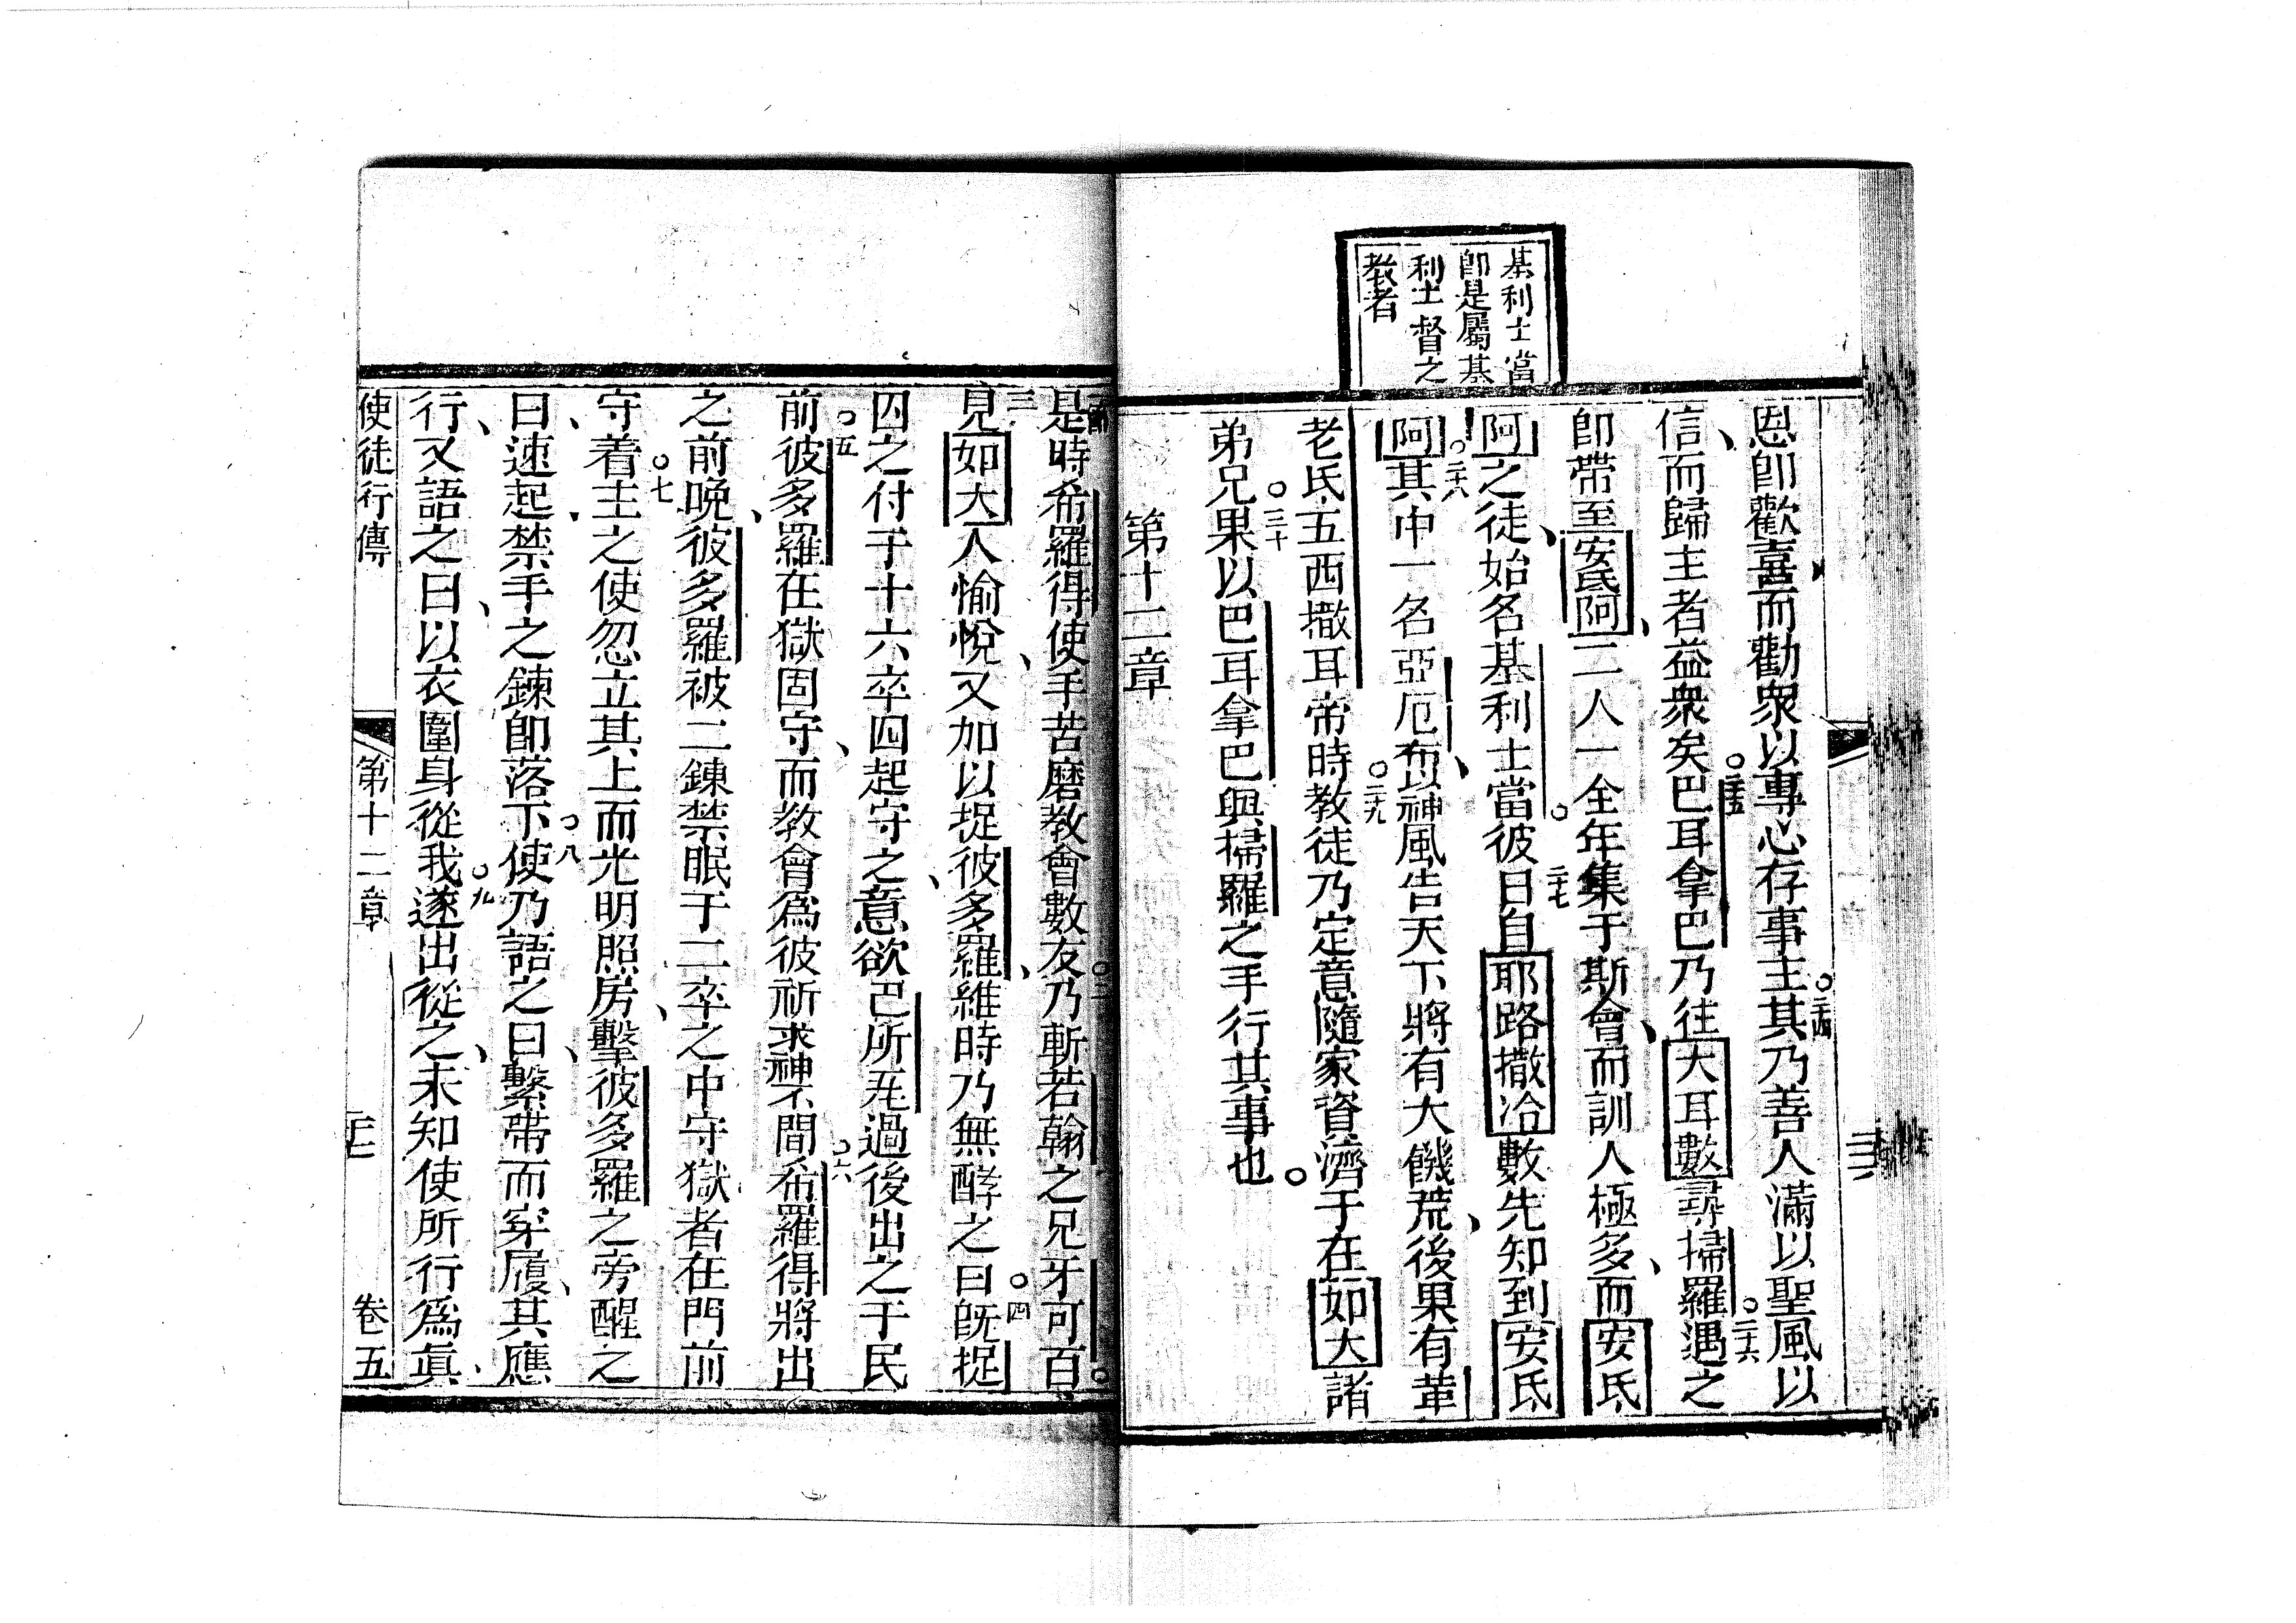 基利士當
卽是屬基
利士督之
教者
恩卽歡喜而勸衆以專心存事主。二十四其乃善人滿以聖風以
信、而歸主者益衆矣。二十五巴耳拿巴乃往大耳數尋掃羅。二十六遇之
卽帶至安氐阿、二人一全年集于斯會、而訓人極多、而安氐
阿之徒、始名基利士當。二十七彼日自耶路撒冷數先知到安氐
阿。二十八其中一名亞厄布、以神風告天下將有大饑荒、後果有革
老氐五西撒耳帝時。二十九教徒乃定意隨家資濟于在如大諸
弟兄。三十果以巴耳拿巴與掃羅之手行其事也。
第十二章
是時希羅得使手苦磨教會數友。二乃斬若翰之兄牙可百。
三見如大人愉悅、又加以捉彼多羅、維時乃無酵之日。四旣捉
囚之付于十六卒四起守之、意欲巴所㐄過後出之于民
前。五彼多羅在獄固守、而教會爲彼祈求神不間。六希羅得將出
之前晚、彼多羅被二鍊禁眠于二卒之中、守獄者在門前
守着。七主之使忽立其上而光明照房、擊彼多羅之旁醒之
曰、速起、禁手之鍊卽落下。八使乃語之曰、繫帶而穿履、其應
行、又語之曰、以衣圍身從我。九遂出從之、未知使所行爲眞、
使徒行傳
第十二章
卷五